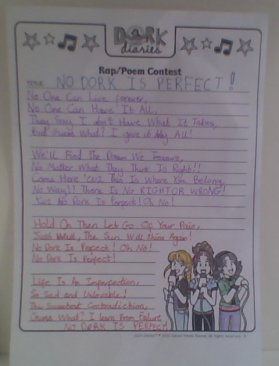 DORK
diaries
Rap/Poem Contest
TITLE: NO DORK IS PERFECT!
No One Can Live Forever,
No One Can Have It All,
They Say I don't Have What It Takes,
But Guess What? I gave it My All!
We'll Find The Dream We Forever,
No Matter What They Think Is Right!!
Come Here 'cus This Is Where You Belong,
No Way!! There Is No RIGHT OR WRONG!
'Cus No Dork Is Perfect! Oh No!
Hold On Then Let Go Of Your Pain,
Just Wait, The Sun Will Shine Again!
No Dork Is Perfect! Oh No!
No Dork Is Perfect!
Life Is An Imperfection,
So Sad and Vulnerable!
The Sweetest Contradiction,
Guess What? I learn From Failure
NO DORK IS PERFECT!